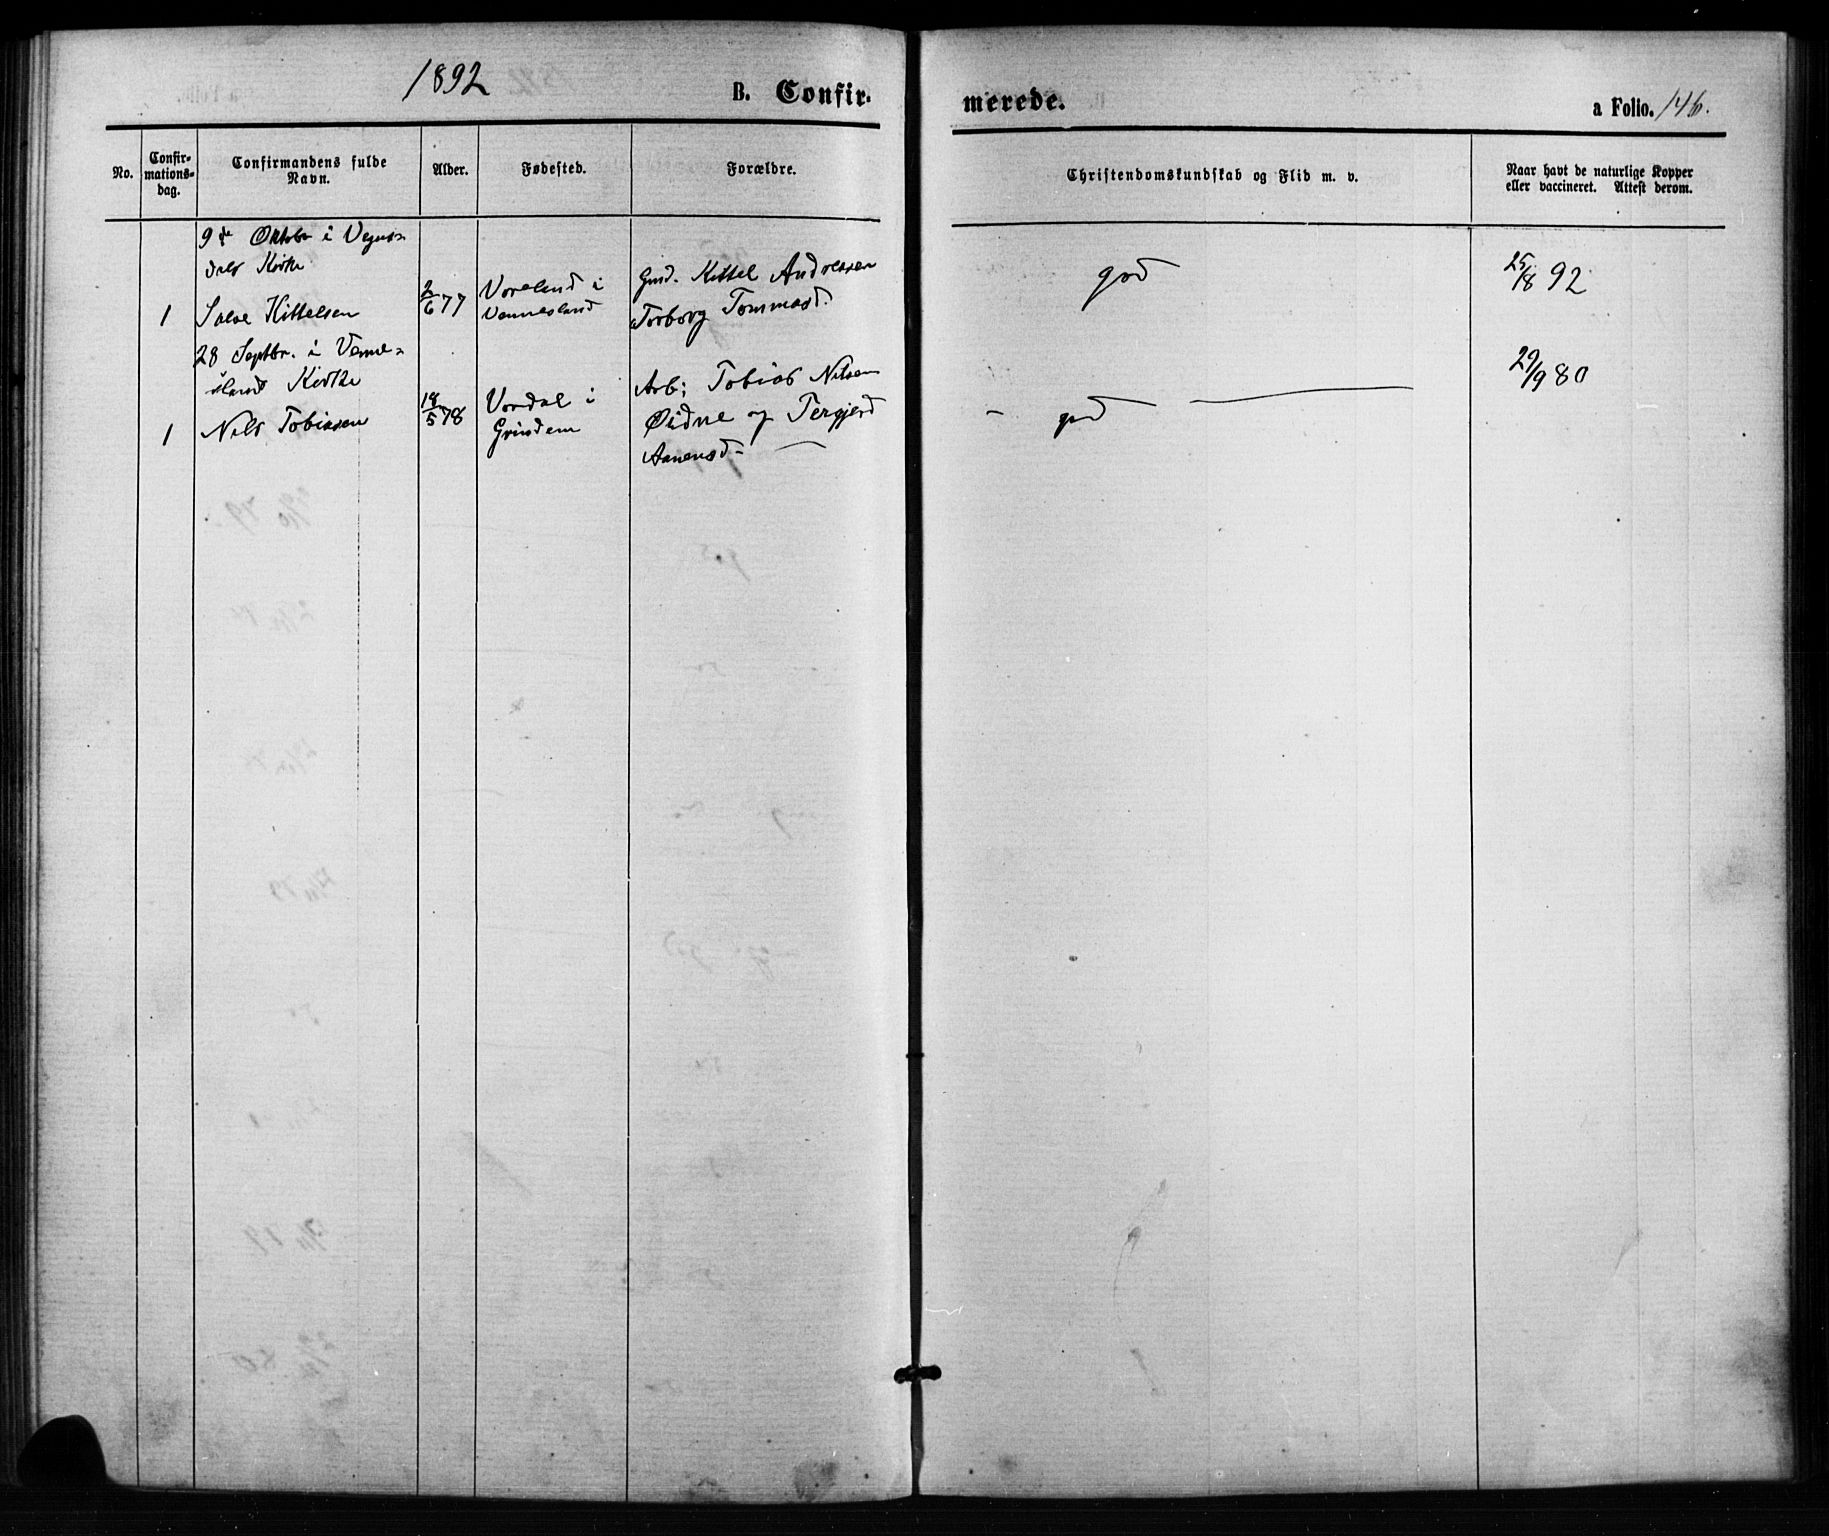 1892
B. Confir-
merede.
a Folio. 146.
No.
Confir-
mations-
dag.
Confirmandens fulde
Navn.
Alder.
Fødested.
Forældre.
Christendomskundskab og Flid m. v.
Naar havt de naturlige Kopper
eller vaccineret. Attest derom.
9de Oktobr i Vegus-
dals Kirke
1 Salve Kittelsen
2/6 77
Voreland i
Vennesland
Gmd. Kittel Andressen
Torborg Tommasd.
god
25/8 92
28 Septbr. i Venne-
slands Kirke
1 Nils Tobiassen
18/5 78
Vordal i
Grindem
Arb: Tobias Nilsen
Øidne og Tergjerd
Aanensd-
- god
29/9 80